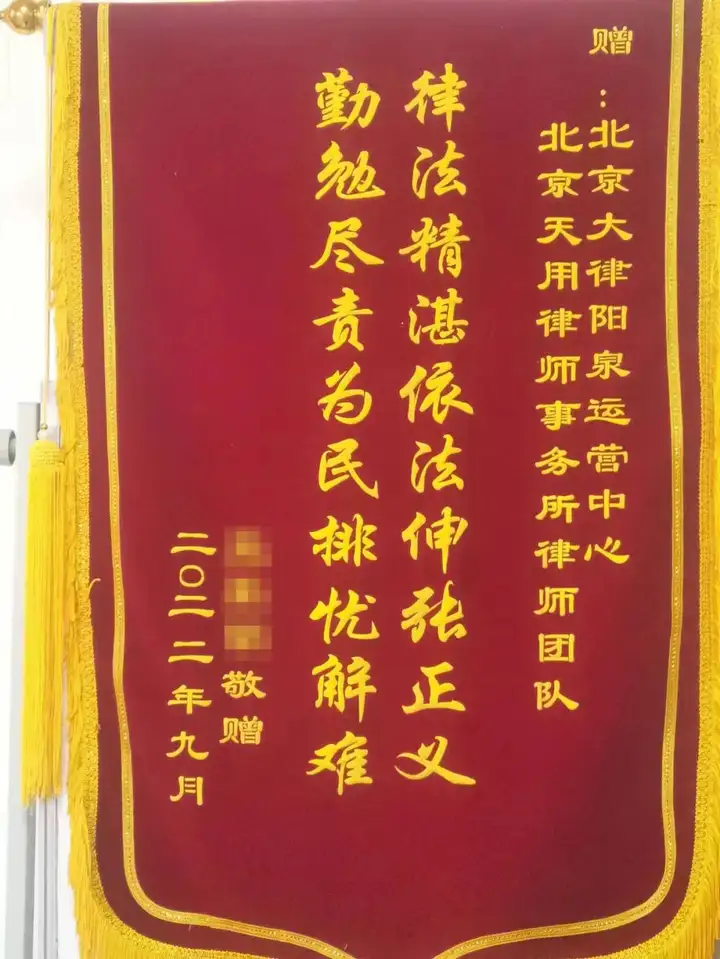 赠：北京大律阳泉运营中心
北京天用律师事务所律师团队
律法精湛依法伸张正义
勤勉尽责为民排忧解难
敬赠
二〇二二年九月